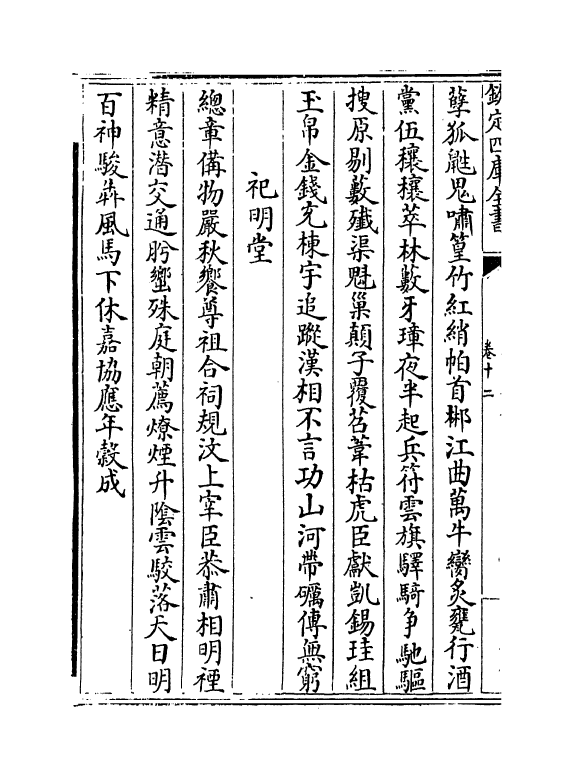 欽定四庫全書
卷十二
孽狐鼪鬼嘯篁竹紅綃帕首梛江曲萬牛臠炙甕行酒
黨伍穰穰萃林藪牙璋夜半起兵符雲旗驛騎争馳驅
搜原剔藪殱渠魁巢顛子覆苕葦枯虎臣獻凱錫珪組
玉帛金錢充棟宇追蹤漢相不言功山河帶礪傳無窮
祀明堂
總章備物嚴秋饗尊祖合祠規汶上宰臣恭肅相明禋
精意潛交通肸蠁殊庭朝薦燎煙升陰雲駮落天日明
百神駿犇風馬下休嘉協應年穀成